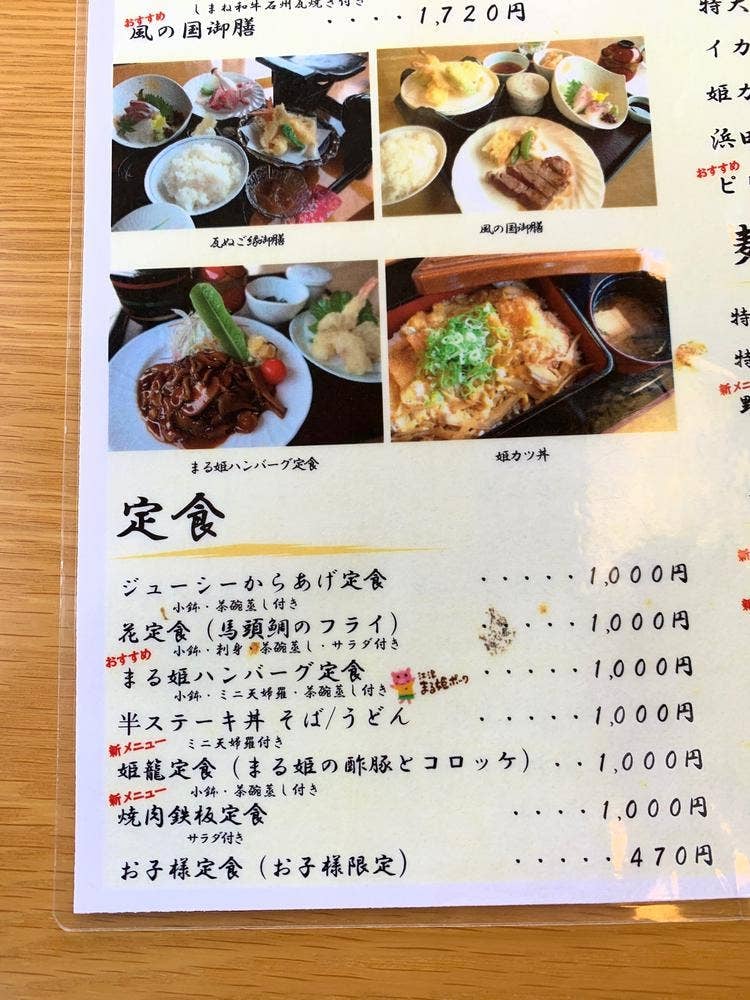 しまね和牛石州瓦焼き付き
おすすめ
風の国御膳 ････1,720円
瓦ぬご縁御膳
風の国御膳
まる姫ハンバーグ定食
姫カツ丼
定食
ジューシーからあげ定食 ･････1,000円
小鉢・茶碗蒸し付き
花定食（馬頭鯛のフライ） ･････1,000円
小鉢・刺身・茶碗蒸し・サラダ付き
おすすめ
まる姫ハンバーグ定食 ･････1,000円
江津
まる姫ポーク
小鉢・ミニ天婦羅・茶碗蒸し付き
半ステーキ丼 そば/うどん ･････1,000円
ミニ天婦羅付き
新メニュー
姫龍定食（まる姫の酢豚とコロッケ） ･･1,000円
小鉢・茶碗蒸し付き
新メニュー
焼肉鉄板定食 ････1,000円
サラダ付き
お子様定食（お子様限定） ･････470円
特大
イカ
姫カ
浜田
おすすめ
ピ
特
特
新メニ
新
新